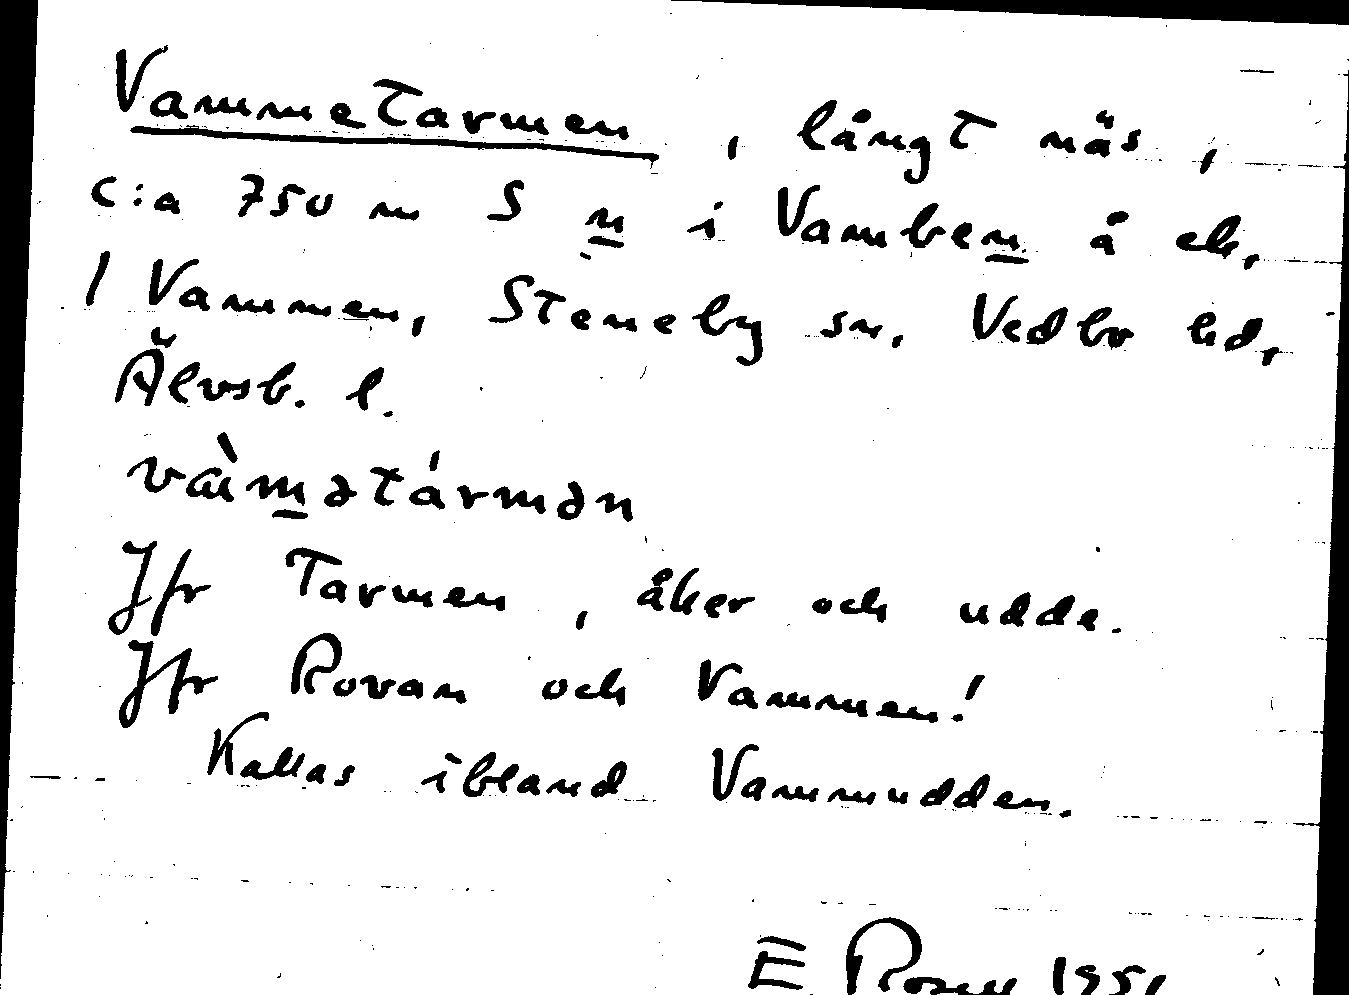 Vammetarmen, långt näs,
c:a 750 m S n i Vamben å ek.
1 Vammen, Steneby sn. Vedbo hd,
Älvsb. l.
vàmətármən
Jfr Tarmen, åker och udde.
Jfr Rovan och Vammen!
Kallas ibland Vammudden.
E Rosen 1951